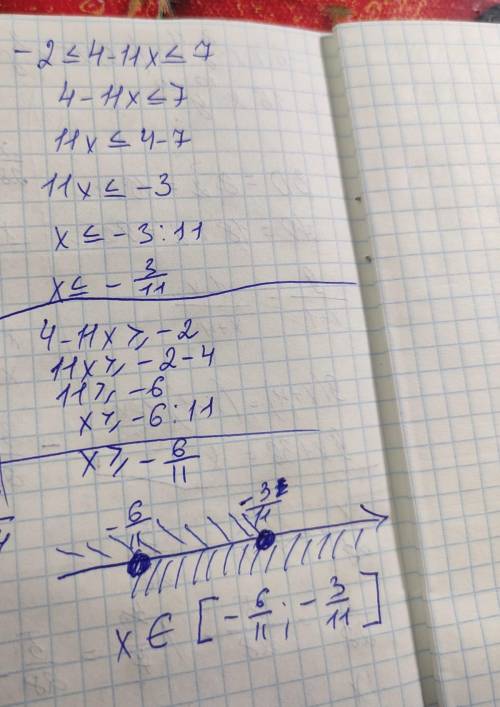 -2 ≤ 4-11x ≤ 7
4-11x ≤ 7
11x ≤ 4-7
11x ≤ -3
x ≤ -3:11
x ≤ - 3/11
4-11x ⩾ -2
11x ⩾ -2-4
11 ⩾ -6
x ⩾ -6:11
x ⩾ - 6/11
- 6/11 - 3/11
x ∈ [- 6/11 ; - 3/11]